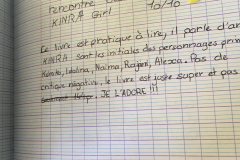 Rencontre
KINRA Girl 10/10
Ce livre est pratique à lire, il parle d'a
KINRA sont les initiales des personnages prin
Kumiko, Idalina, Naima, Rajani, Alexa. Pas de
critique négative, le livre est juste super et pas
JE L'ADORE !!!